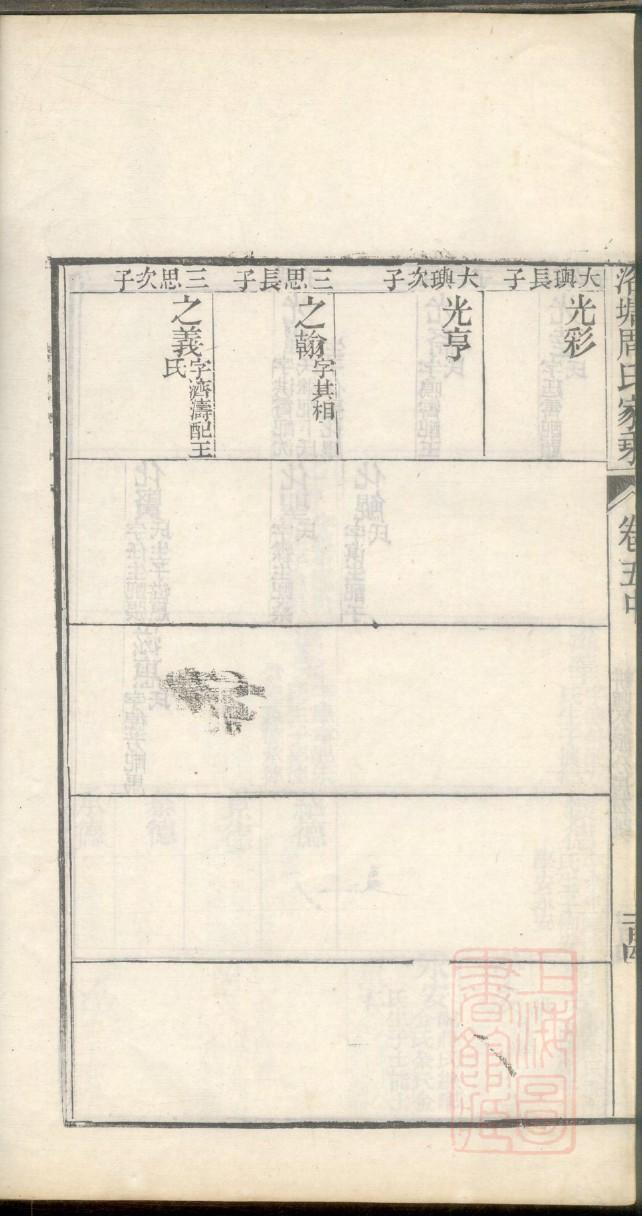 洛塘周氏家乘
卷五中
大輿長子
光彩
大輿次子
光亨
三思長子
之翰字其相
三思次子
之義字濟濤配王
氏
上海圖
書館藏